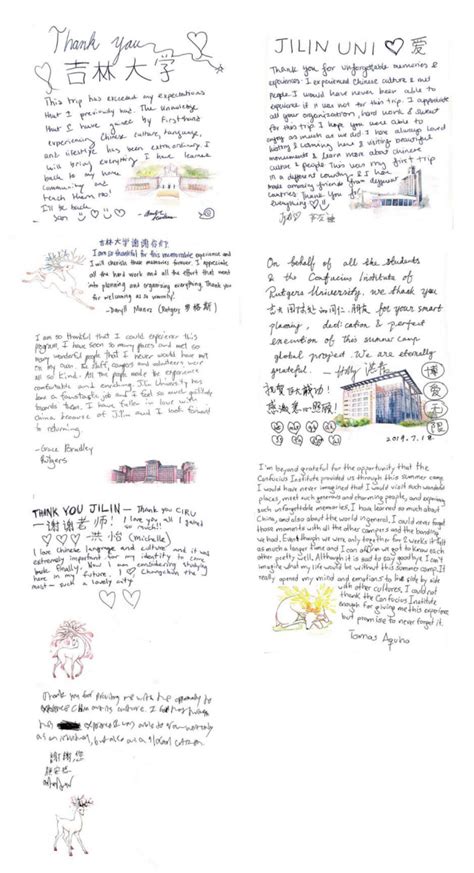 Thank you
吉林大学
This trip has exceeded my expectations
that I previously had. The knowledge
that I have gained by firsthand
experiencing Chinese culture, language,
and lifestyle has been extraordinary. I
will bring everything I have learned
back to my home
community and
teach them too!
I'll be back
soon
吉林大学谢谢你们.
I am so thankful for this memorable experience and
I will cherish these memories forever. I appreciate
all the hard work and all the effort that went
into planning and organizing everything. Thank you
for welcoming us so warmly.
-Daryll (Rutgers
I am so thankful that I could experience this
program. I have seen so many places and met so
many wonderful people that I never would have met
on my own. The staff, campers and volunteers were
all so kind. All the people made the experience
comfortable and enriching. Jilin University has
done a fantastic job and I feel so much gratitude
towards them. I have fallen in love with
China because of Jilin and I look forward
to returning.
-Grace Bradley
Rutgers
THANK YOU JILIN - Thank you CIRU
谢谢老师! I love you all
so much!!
洪怡 (michelle)
I love Chinese language and culture and it was
extremely important for my identity to come
here finally. Now I am considering studying
here in my future. I ♡ Changchun the
most - such a lovely city
Thank you for providing me with the opportunity to
experience culture.
has experience
as an individual, but also as a global citizen
謝謝您
JILIN UNI ♡ 爱
Thank you for unforgettable memories &
experiences. I experienced Chinese culture &
people I would have never been able to
experience if it was not for this trip. I appreciate
all your organization, hard work & sweat
for this trip. I hope you were able to
enjoy as much as we did. I have always loved
history & learning here & visiting beautiful
monuments & learn more about chinese
culture & people. This was my first trip
in a different country & I have
made amazing friends from different
countries. Thank You for
everything ♡
On behalf of all the students
& the Confucius Institute of
Rutgers University, we thank you
for your smart
planning, dedication & perfect
execution of this summer camp
global project. We are eternally
grateful. - Holly
祝贺巨大成功!
感谢关心照顾!
博爱无疆
2019.7.18.
I'm beyond grateful for the opportunity that the
Confucius Institute provided us through this summer camp.
I would have never imagined that I would visit such wonderful
places, meet such generous and charming people, and acquiring
such unforgettable memories. I have learned so much about
China, and also about the world in general. I could never forget
those moments with all the other campers and the bonding
we had. Even though we were only together for 2 weeks it felt
as much longer time and I can affirm we got to know each
other pretty well. Although it is sad to say goodbye, I can't
imagine what my life would be without this summer camp. It
really opened my mind and emotions to live side by side
with other cultures, I could not
thank the Confucius Institute
enough for giving me this experience
but promise to never forget it.
Tomas